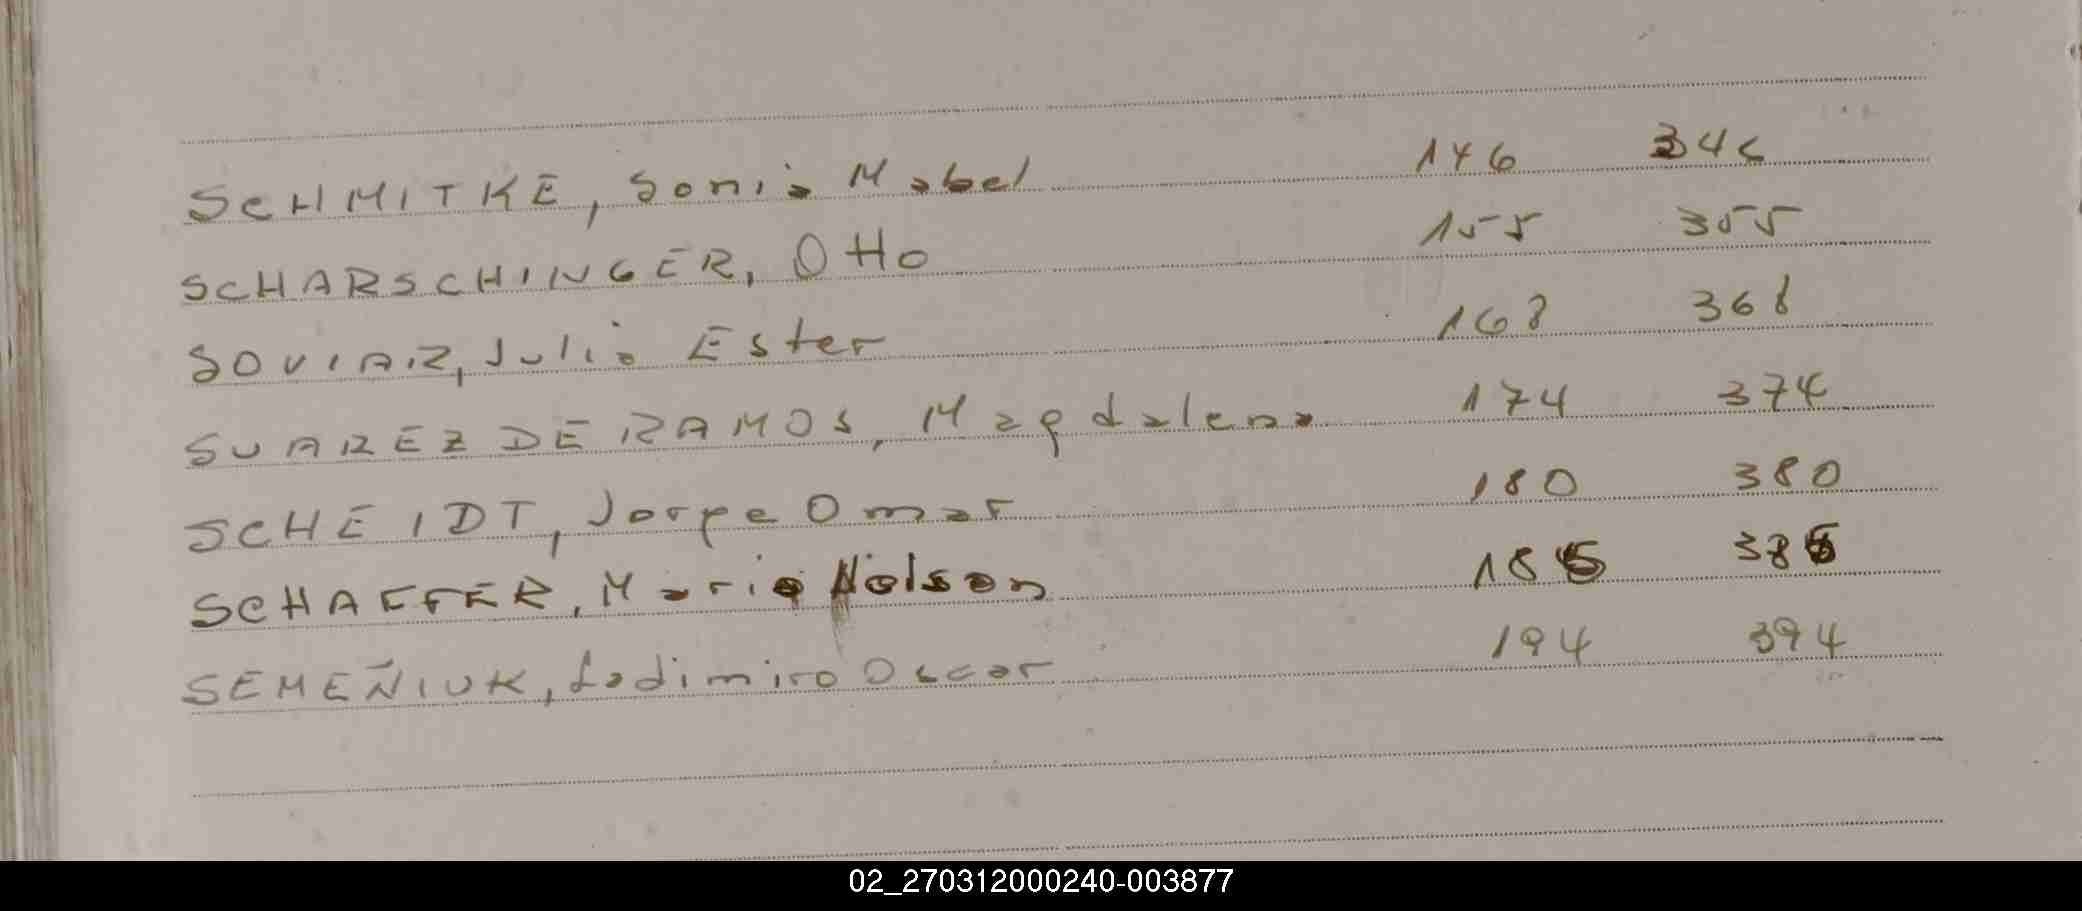 SCHMITKE, Sonia Mabel 146 346
SCHARSCHINGER, Otto 155 355
SOVIAR, Julia Ester 168 368
SUAREZ DE RAMOS, Magdalena 174 374
SCHEIDT, Jorge Omar 180 380
SCHAEFER, Mario Nelson 186 386
SEMEÑIUK, Ladimiro Oscar 194 394
02_270312000240-003877